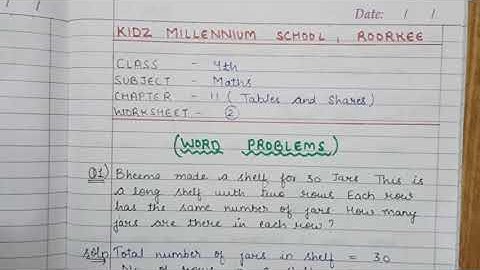 Date: / /
KIDZ MILLENNIUM SCHOOL, ROORKEE
CLASS - 4th
SUBJECT - Maths
CHAPTER - 11 ( Tables and Shares)
WORKSHEET - 2
(WORD PROBLEMS)
Q1) Bheema made a shelf for 30 Jars This is
a long shelf with two rows Each row
has the same number of jars How many
jars are there in each row?
Solp Total number of jars in shelf = 30